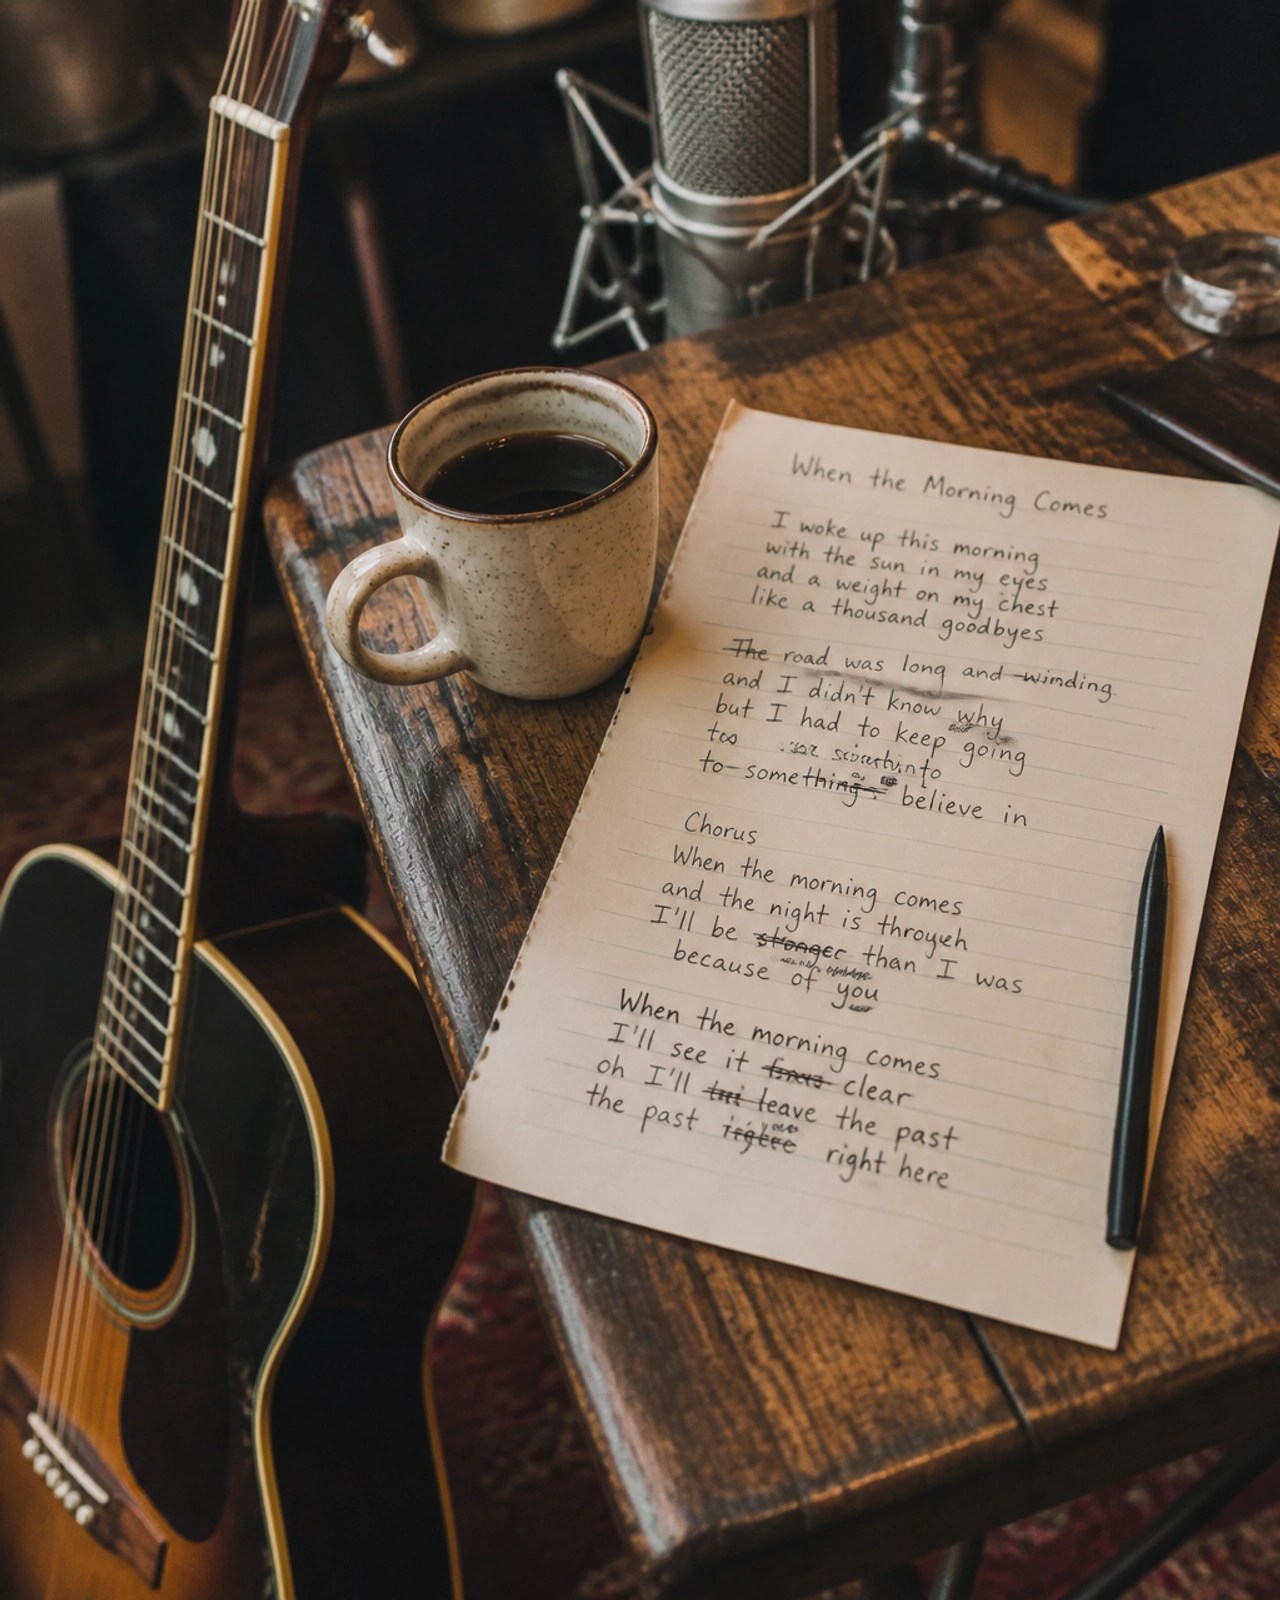 When the Morning Comes
I woke up this morning
with the sun in my eyes
and a weight on my chest
like a thousand goodbyes
The road was long and winding
and I didn't know why
but I had to keep going
too
to something believe in
Chorus
When the morning comes
and the night is throyeh
I'll be stonger than I was
because of you
When the morning comes
I'll see it clear
oh I'll leave the past
the past right here